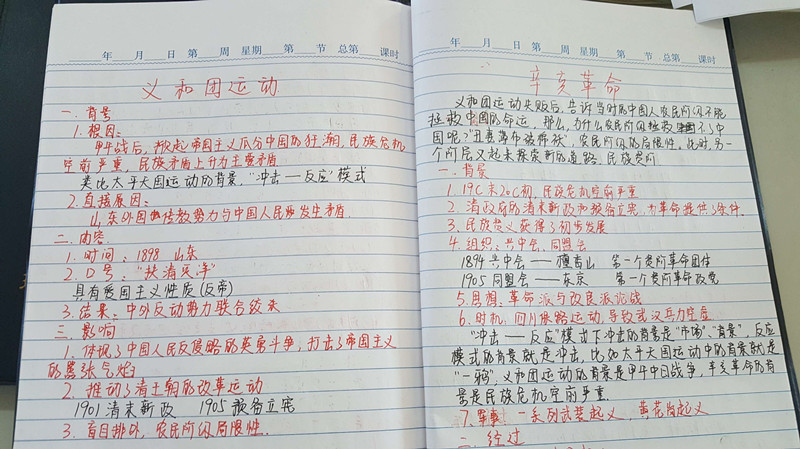 年 月 日 第 周 星期 第 节 总第 课时
义和团运动
一. 背景
1. 根因:
甲午战后, 掀起帝国主义瓜分中国的狂潮, 民族危机
空前严重, 民族矛盾上升为主要矛盾
类比太平天国运动的背景, "冲击——反应"模式
2. 直接原因:
山东外国传教势力与中国人民发生矛盾.
二. 内容.
1. 时间: 1898 山东
2. 口号: "扶清灭洋"
具有爱国主义性质(反帝)
3. 结果: 中外反动势力联合绞杀
三. 影响
1. 体现了中国人民反侵略的英勇斗争, 打击了帝国主义
的嚣张气焰
2. 推动了清王朝的改革运动
1901 清末新政 1905 预备立宪
3. 盲目排外, 农民阶级局限性.
年 月 日 第 周 星期 第 节 总第 课时
辛亥革命
义和团运动失败后, 告诉当时的中国人农民阶级不能
拯救中国的命运. 那么, 为什么农民阶级拯救不了中
国呢?农民阶级的局限性. 此时, 另一
个阶层又起来探索新的道路. 民族资阶
一. 背景
1. 19C末20C初, 民族危机空前严重
2. 清政府的清末新政和预备立宪, 为革命提供了条件.
3. 民族资义获得了初步发展
4. 组织: 兴中会、同盟会
1894 兴中会——檀香山 第一个资阶革命团体
1905 同盟会——东京 第一个资阶革命政党
5. 思想: 革命派与改良派论战
6. 时机: 四川保路运动, 导致武汉兵力空虚
"冲击——反应"模式下冲击的背景是"市场"、"背景", 反应
模式的背景就是冲击, 比如太平天国运动中的背景就是
"一鸦", 义和团运动的背景是甲午中日战争, 辛亥革命的背
景是民族危机空前严重.
7. 军事: 一系列武装起义, 黄花岗起义
二. 经过